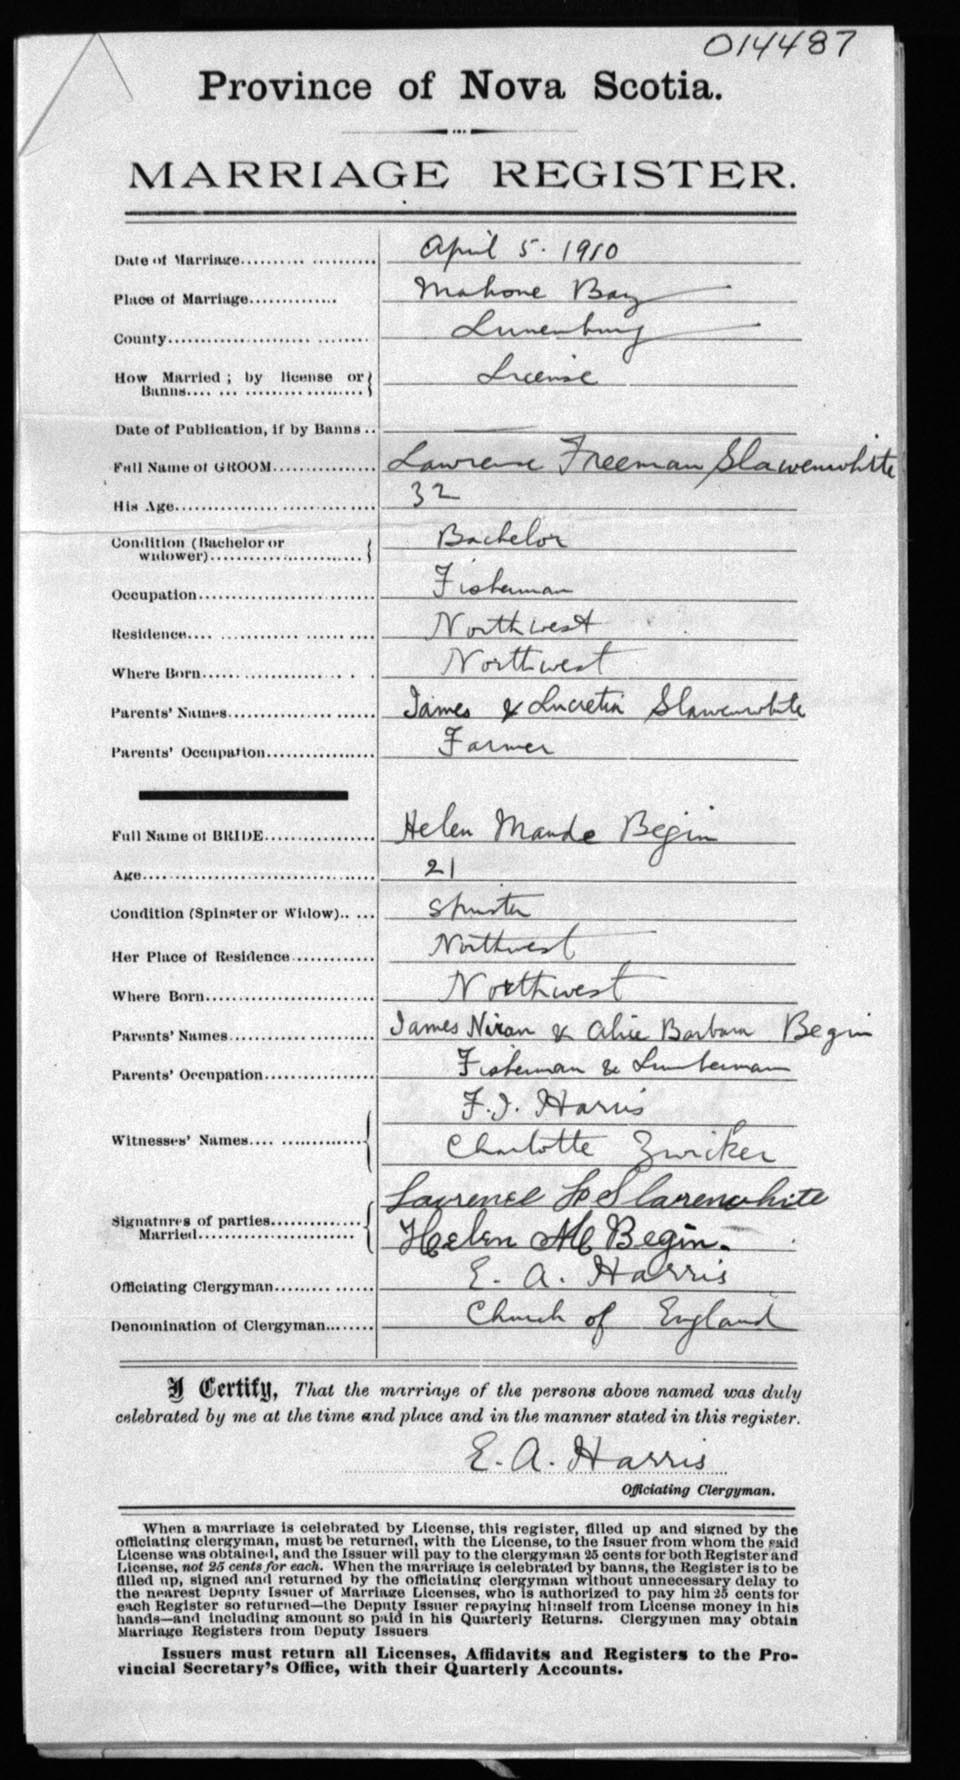 014487
Province of Nova Scotia.
MARRIAGE REGISTER.
Date of Marriage.......... ................... April 5. 1910
Place of Marriage.............. Mahone Bay
County....................... ........ Lunenburg
How Married ; by license or License
Banns.... ... ..................
Date of Publication, if by Banns ..
Full Name of GROOM............... Lawrence Freeman Slawenwhite
His Age.............................. 32
Condition (Bachelor or Bachelor
widower)......................
Occupation.......................... Fisherman
Residence.... ............ ...... .... Northwest
Where Born...................... . . Northwest
Parents' Names..................... James & Lucretia Slawenwhite
Parents' Occupation................ Farmer
Full Name of BRIDE................ Helen Maude Begin
Age.................................. 21
Condition (Spinster or Widow).. ... Spinster
Her Place of Residence............ Northwest
Where Born........................ Northwest
Parents' Names..................... James Nixan & Alice Barbara Begin
Parents' Occupation................ Fisherman & Lumberman
F. J. Harris
Witnesses' Names.... ............
Charlotte Zwicker
Lawrence F Slawenwhite
Signatures of parties.............
Married....................... Helen M Begin.
Officiating Clergyman.............. E. A. Harris
Denomination of Clergyman....... Church of England
I Certify, That the marriage of the persons above named was duly
celebrated by me at the time and place and in the manner stated in this register.
E. A. Harris
Officiating Clergyman.
When a marriage is celebrated by License, this register, filled up and signed by the
officiating clergyman, must be returned, with the License, to the Issuer from whom the said
License was obtained, and the Issuer will pay to the clergyman 25 cents for both Register and
License, not 25 cents for each. When the marriage is celebrated by banns, the Register is to be
filled up, signed and returned by the officiating clergyman without unnecessary delay to
the nearest Deputy Issuer of Marriage Licenses, who is authorized to pay him 25 cents for
each Register so returned—the Deputy Issuer repaying himself from License money in his
hands—and including amount so paid in his Quarterly Returns. Clergymen may obtain
Marriage Registers from Deputy Issuers
Issuers must return all Licenses, Affidavits and Registers to the Pro-
vincial Secretary's Office, with their Quarterly Accounts.